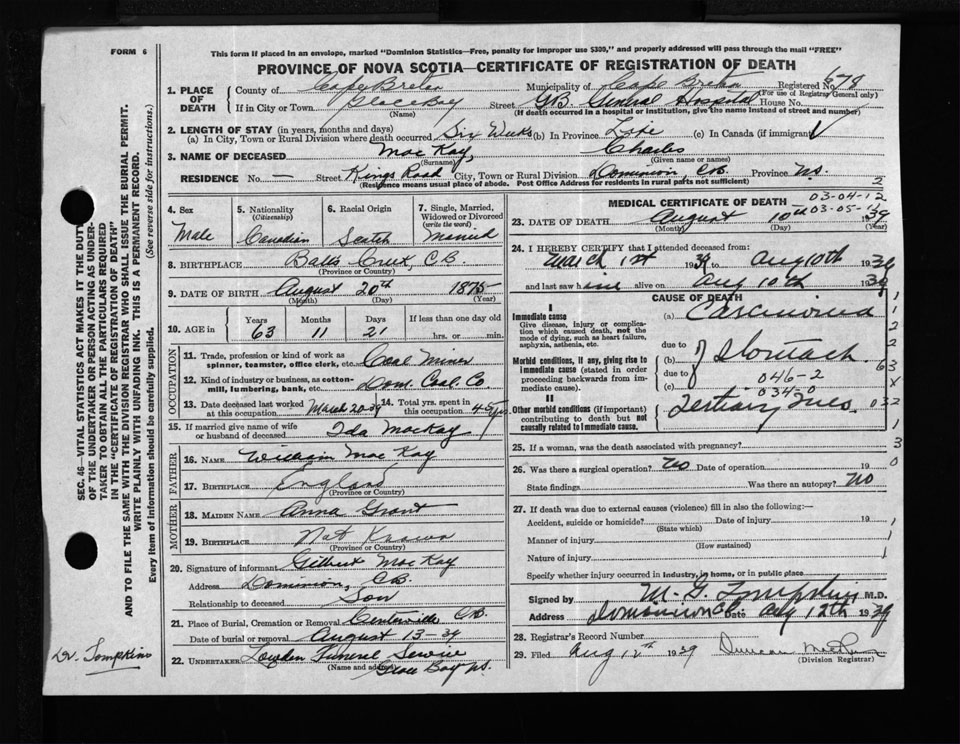 FORM 6
This form if placed in an envelope, marked "Dominion Statistics—Free, penalty for improper use $300," and properly addressed will pass through the mail "FREE"
PROVINCE OF NOVA SCOTIA—CERTIFICATE OF REGISTRATION OF DEATH
1. PLACE OF DEATH County of Cape Breton Municipality of Cape Breton Registered No. 678
(For use of Registrar General only)
If in City or Town Glace Bay Street G.B. General Hospital House No.
(Name) (If death occurred in a hospital or institution, give the name instead of street and number)
2. LENGTH OF STAY (in years, months and days)
(a) In City, Town or Rural Division where death occurred Six Weeks (b) In Province Life (c) In Canada (if immigrant)
3. NAME OF DECEASED MacKay, Charles
(Surname) (Given name or names)
RESIDENCE No. — Street Kings Road City, Town or Rural Division Dominion, C.B. Province N.S.
(Residence means usual place of abode. Post Office Address for residents in rural parts not sufficient)
4. Sex Male
5. Nationality (Citizenship) Canadian
6. Racial Origin Scotch
7. Single, Married, Widowed or Divorced (write the word) Married
8. BIRTHPLACE Balls Creek, C.B.
(Province or Country)
9. DATE OF BIRTH August 20th 1875
(Month) (Day) (Year)
10. AGE in Years Months Days If less than one day old
63 11 21 hrs. or min.
OCCUPATION
11. Trade, profession or kind of work as spinner, teamster, office clerk, etc. Coal Miner
12. Kind of industry or business, as cotton-mill, lumbering, bank, etc. Dom. Coal Co.
13. Date deceased last worked at this occupation March 20-39 14. Total yrs. spent in this occupation 45 yrs
15. If married give name of wife or husband of deceased Ida MacKay
FATHER
16. NAME William MacKay
17. BIRTHPLACE England
(Province or Country)
MOTHER
18. MAIDEN NAME Anna Grant
19. BIRTHPLACE Not Known
(Province or Country)
20. Signature of informant Gilbert MacKay
Address Dominion, C.B.
Relationship to deceased Son
21. Place of Burial, Cremation or Removal Centerville C.B.
Date of burial or removal August 13-39
22. UNDERTAKER Lowden Funeral Service
(Name and address) Glace Bay N.S.
MEDICAL CERTIFICATE OF DEATH
03-04-12
03-05-14
23. DATE OF DEATH August 10th 1939
(Month) (Day) (Year)
24. I HEREBY CERTIFY that I attended deceased from:
March 1st 1939 to Aug 10th 1939
and last saw him alive on Aug 10th 1939
CAUSE OF DEATH
I
Immediate cause (a) Carcinoma
Give disease, injury or complication which caused death, not the mode of dying, such as heart failure, asphyxia, asthenia, etc.
due to
(b) of Stomach
Morbid conditions, if any, giving rise to immediate cause (stated in order proceeding backwards from immediate cause).
due to
(c) 046-2
034-0
II
Other morbid conditions (if important) contributing to death but not causally related to immediate cause.
Tertiary Lues 032
25. If a woman, was the death associated with pregnancy?
26. Was there a surgical operation? No Date of operation 19
State findings Was there an autopsy? No
27. If death was due to external causes (violence) fill in also the following:—
Accident, suicide or homicide? Date of injury 19
(State which)
Manner of injury
(How sustained)
Nature of injury
Specify whether injury occurred in industry, in home, or in public place
Signed by M. G. Tompkins M.D.
Address Dominion CB Date Aug 12th 1939
28. Registrar's Record Number
29. Filed Aug 12th 1939 Duncan
(Division Registrar)
SEC. 46—VITAL STATISTICS ACT MAKES IT THE DUTY OF THE UNDERTAKER OR PERSON ACTING AS UNDERTAKER TO OBTAIN ALL THE PARTICULARS REQUIRED IN THE "CERTIFICATE OF REGISTRATION OF DEATH"
AND TO FILE THE SAME WITH THE DIVISION REGISTRAR WHO SHALL ISSUE THE BURIAL PERMIT.
WRITE PLAINLY WITH UNFADING INK. THIS IS A PERMANENT RECORD.
Every item of information should be carefully supplied. (See reverse side for instructions.)
Dr. Tompkins